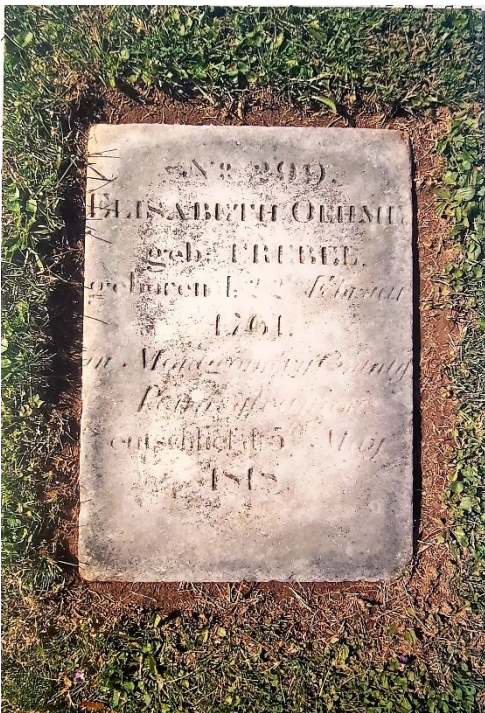 No. 299.
ELISABETH OEHME,
geb. FREBEL.
geboren d. 22
1761.
in Montgomery County
Pennsylvanien
entschlief d. 5 May
1818.